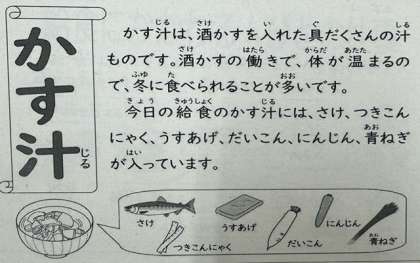 かす汁
かす汁は、酒かすを入れた具だくさんの汁
ものです。酒かすの働きで、体が温まるの
で、冬に食べられることが多いです。
今日の給食のかす汁には、さけ、つきこん
にゃく、うすあげ、だいこん、にんじん、青ねぎ
が入っています。
さけ
つきこんにゃく
うすあげ
だいこん
にんじん
青ねぎ